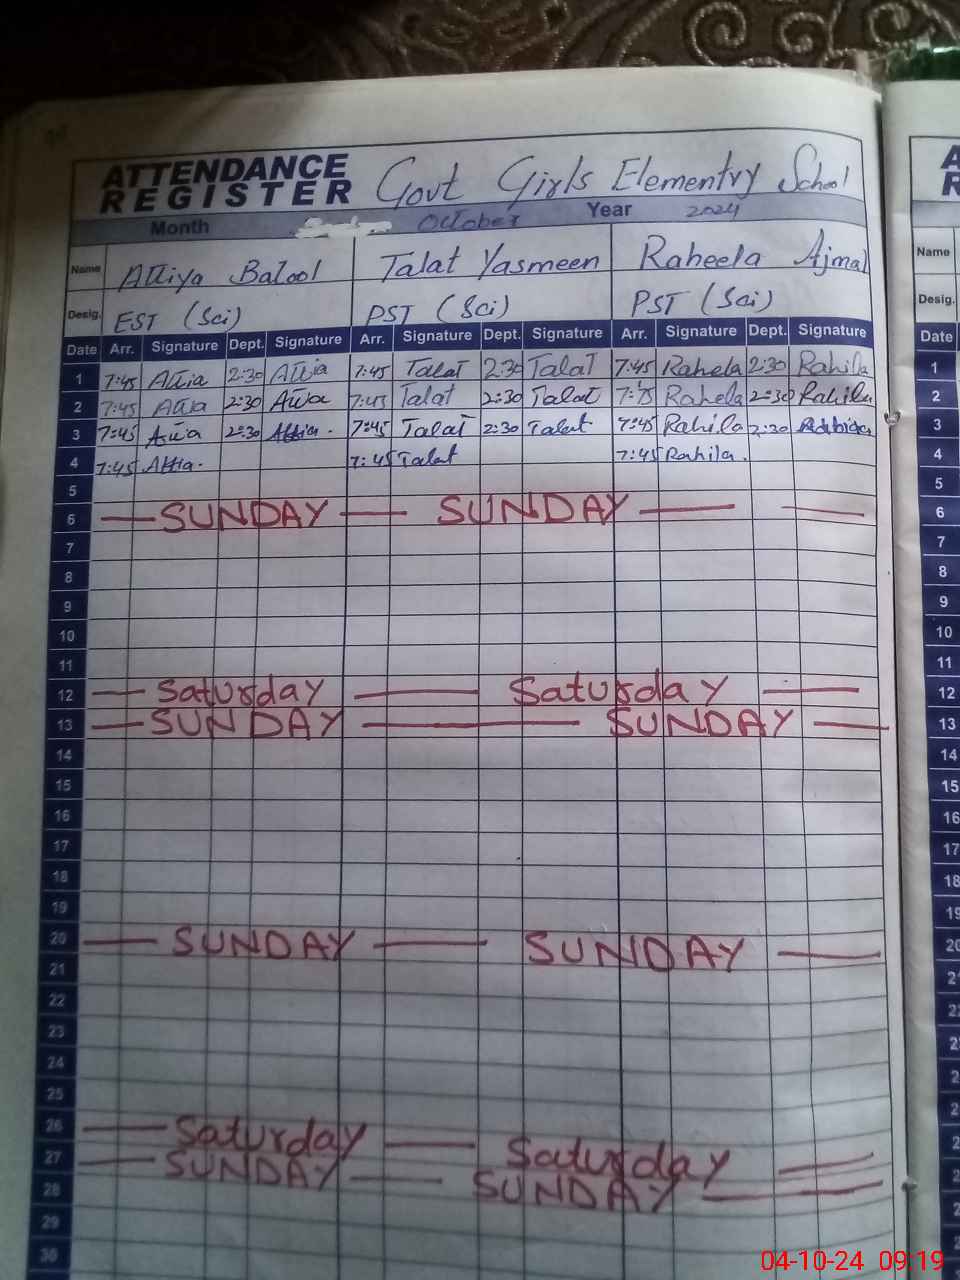 ATTENDANCE REGISTER Govt Girls Elementry School
Month October Year 2024
Name Attiya Batool Talat Yasmeen Raheela Ajmal Name
Desig. EST (Sci) PST (Sci) PST (Sci) Desig.
Date Arr. Signature Dept. Signature Arr. Signature Dept. Signature Arr. Signature Dept. Signature Date
1 7:45 Attia 2:30 Attia 7:45 Talat 2:30 Talat 7:45 Rahela 2:30 Rahila 1
2 7:45 Attia 2:30 7:45 Talat 2:30 Talat Rahela 2:30 Rahila 2
3 7:45 2:30 Attia. 7:45 Talat 2:30 Talat 7:45 Rahila 2:30 3
4 7:45 Attia. 7:45 Talat 7:45 Rahila. 4
5 5
6 SUNDAY SUNDAY 6
7 7
8 8
9 9
10 10
11 11
12 Saturday Saturday 12
13 SUNDAY SUNDAY 13
14 14
15 15
16 16
17 17
18 18
19 19
20 SUNDAY SUNDAY 20
21
22
23
24
25
26 Saturday Saturday
27 SUNDAY SUNDAY
28
29
30
04-10-24 09:19